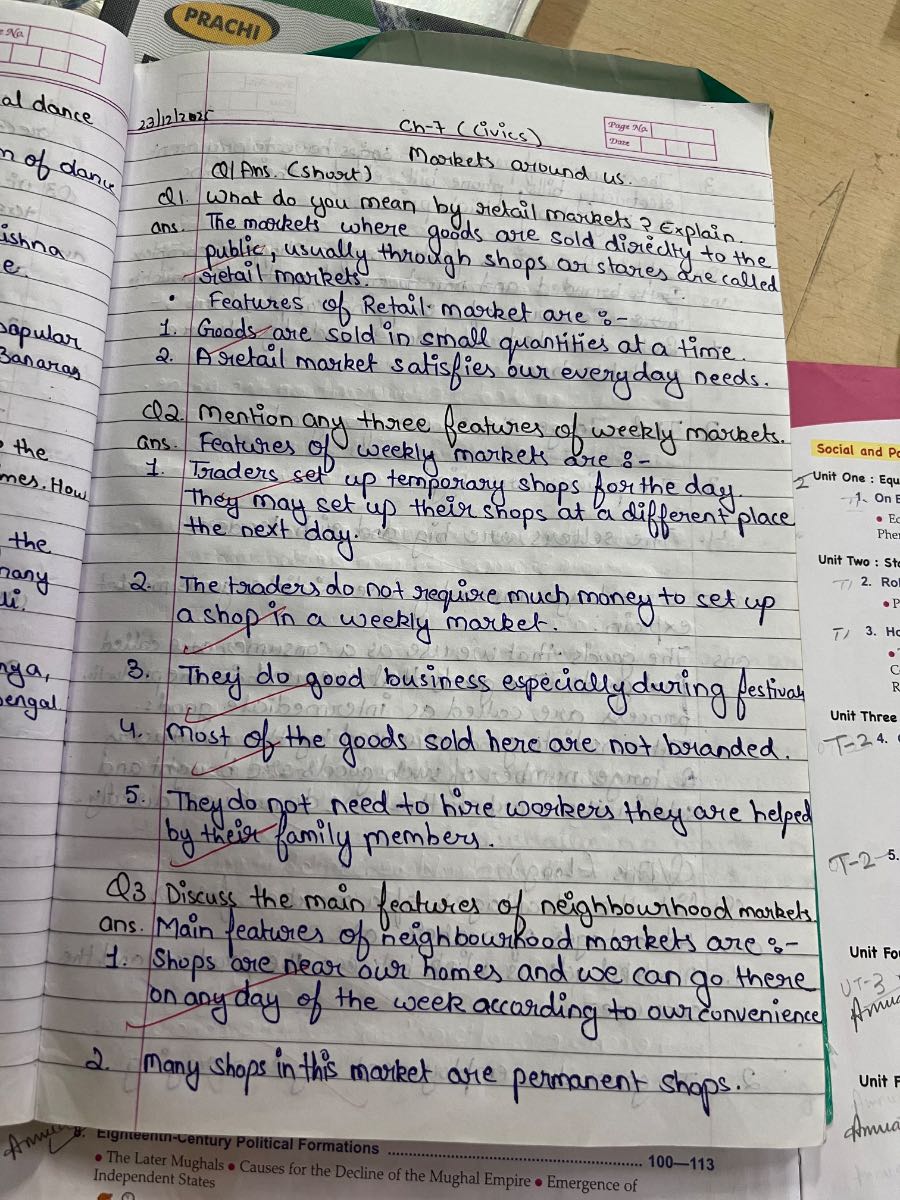 PRACHI
Page No.
al dance
n of dance
ishna
e.
popular
Banaras
the
mes. How
the
many
di.
nga,
engal
23/12/2025
Ch-7 (Civics)
Page No.
Date
Markets around us.
Q/Ans. (Short)
Q1. What do you mean by retail markets? Explain.
ans. The markets where goods are sold directly to the
public, usually through shops or stores are called
retail markets.
• Features of Retail market are :-
1. Goods are sold in small quantities at a time.
2. A retail market satisfies our everyday needs.
Q2. Mention any three features of weekly markets.
ans. Features of weekly markets are :-
1. Traders set up temporary shops for the day.
They may set up their shops at a different place
the next day.
2. The traders do not require much money to set up
a shop in a weekly market.
3. They do good business especially during festivals
4. Most of the goods sold here are not branded.
5. They do not need to hire workers they are helped
by their family members.
Q3 Discuss the main features of neighbourhood markets
ans. Main features of neighbourhood markets are :-
1. Shops are near our homes and we can go there
on any day of the week according to our convenience
2. Many shops in this market are permanent shops.
Social and Po
Unit One : Equ
1. On E
• Eq
Pher
Unit Two : Sta
2. Rol
• P
3. Ho
Unit Three
T-2 4.
T-2 5.
Unit Fou
UT-3
Annua
Unit F
Annua
Annu
8. Eighteenth-Century Political Formations ........ 100—113
• The Later Mughals • Causes for the Decline of the Mughal Empire • Emergence of
Independent States